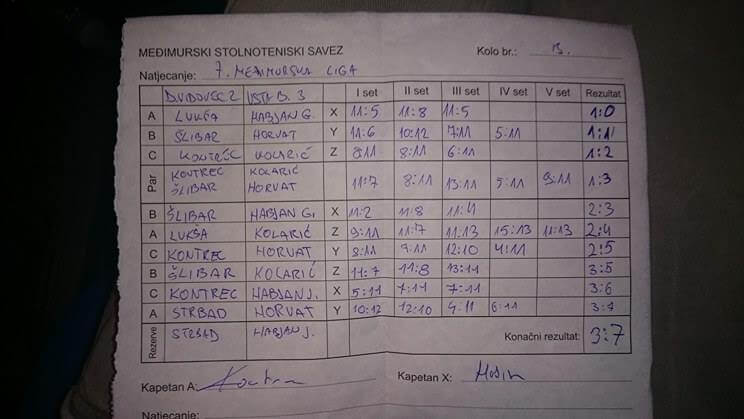 MEĐIMURSKI STOLNOTENISKI SAVEZ Kolo br.: 13.
Natjecanje: 7. MEĐIMURSKA LIGA
DVIDOVEC 2 USTA B. 3 I set II set III set IV set V set Rezultat
A LUKŠA HABJAN G. X 11:5 11:8 11:5 1:0
B ŠLIBAR HORVAT Y 11:6 10:12 7:11 5:11 1:1
C KONTREC KOLARIĆ Z 8:11 8:11 6:11 1:2
Par KONTREC ŠLIBAR KOLARIĆ HORVAT 11:7 8:11 13:11 5:11 9:11 1:3
B ŠLIBAR HABJAN G. X 11:2 11:8 11:4 2:3
A LUKŠA KOLARIĆ Z 9:11 11:7 11:13 15:13 11:13 2:4
C KONTREC HORVAT Y 8:11 9:11 12:10 4:11 2:5
B ŠLIBAR KOLARIĆ Z 11:7 11:8 13:11 3:5
C KONTREC HABJAN J. X 5:11 7:11 7:11 3:6
A STRBAD HORVAT Y 10:12 12:10 4:11 6:11 3:7
Rezerve STRBAD HABJAN J. Konačni rezultat: 3:7
Kapetan A: Kapetan X:
Natjecanje: